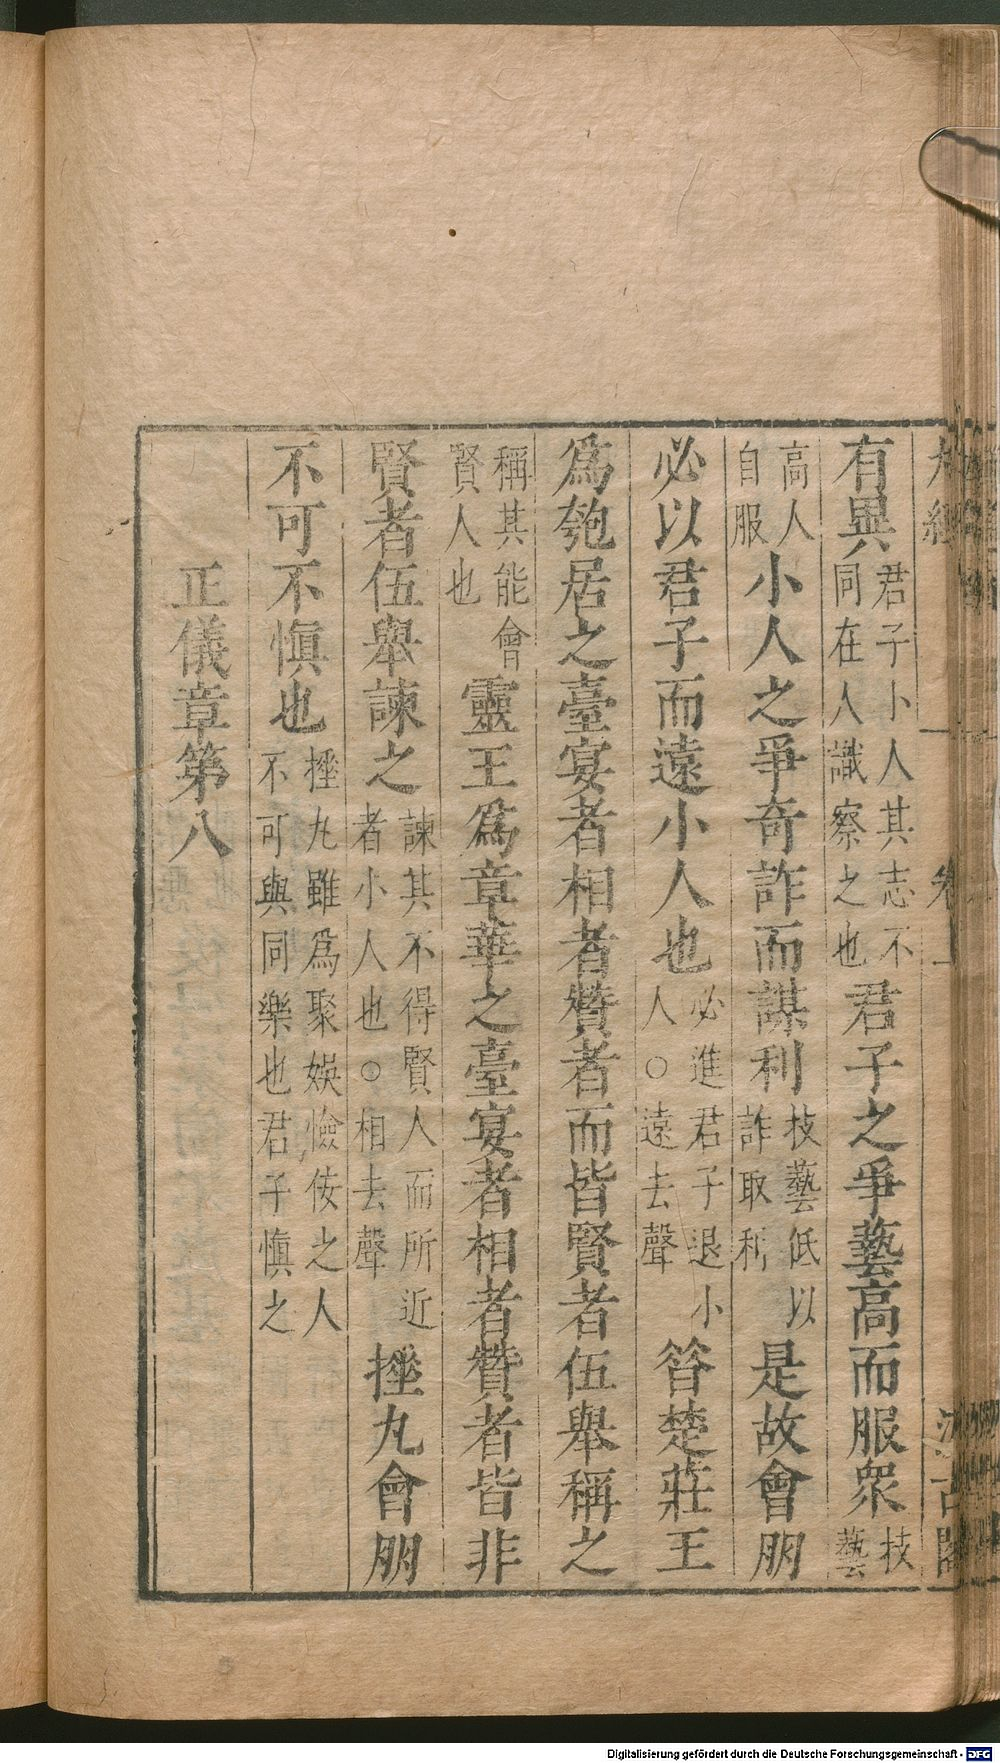 有異君子小人其志不同在人識察之也君子之爭藝高而服衆技藝
高人自服小人之爭奇詐而謀利技藝低以詐取利是故會朋
必以君子而遠小人也必進君子退小人○遠去聲昝楚莊王
爲匏居之臺宴者相者贊者而皆賢者伍舉稱之
稱其能會賢人也靈王爲章華之臺宴者相者贊者皆非
賢者伍舉諫之諫其不得賢人而所近者小人也○相去聲捶丸會朋
不可不愼也捶丸雖爲聚娛憸佞之人不可與同樂也君子愼之
正儀章第八
Digitalisierung gefördert durch die Deutsche Forschungsgemeinschaft - DFG